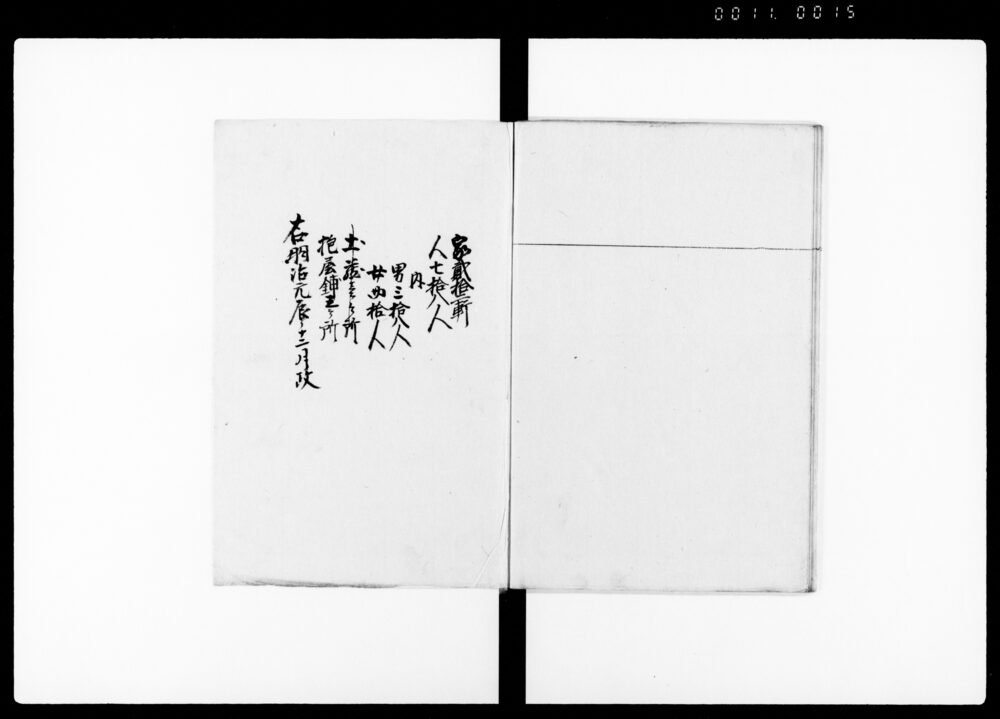 0011. 0015
家貳拾軒
人七拾八人
内
男三拾八人
女四拾人
土蔵壱ヶ所
抱屋鋪壱ヶ所
右明治元辰年十二月改